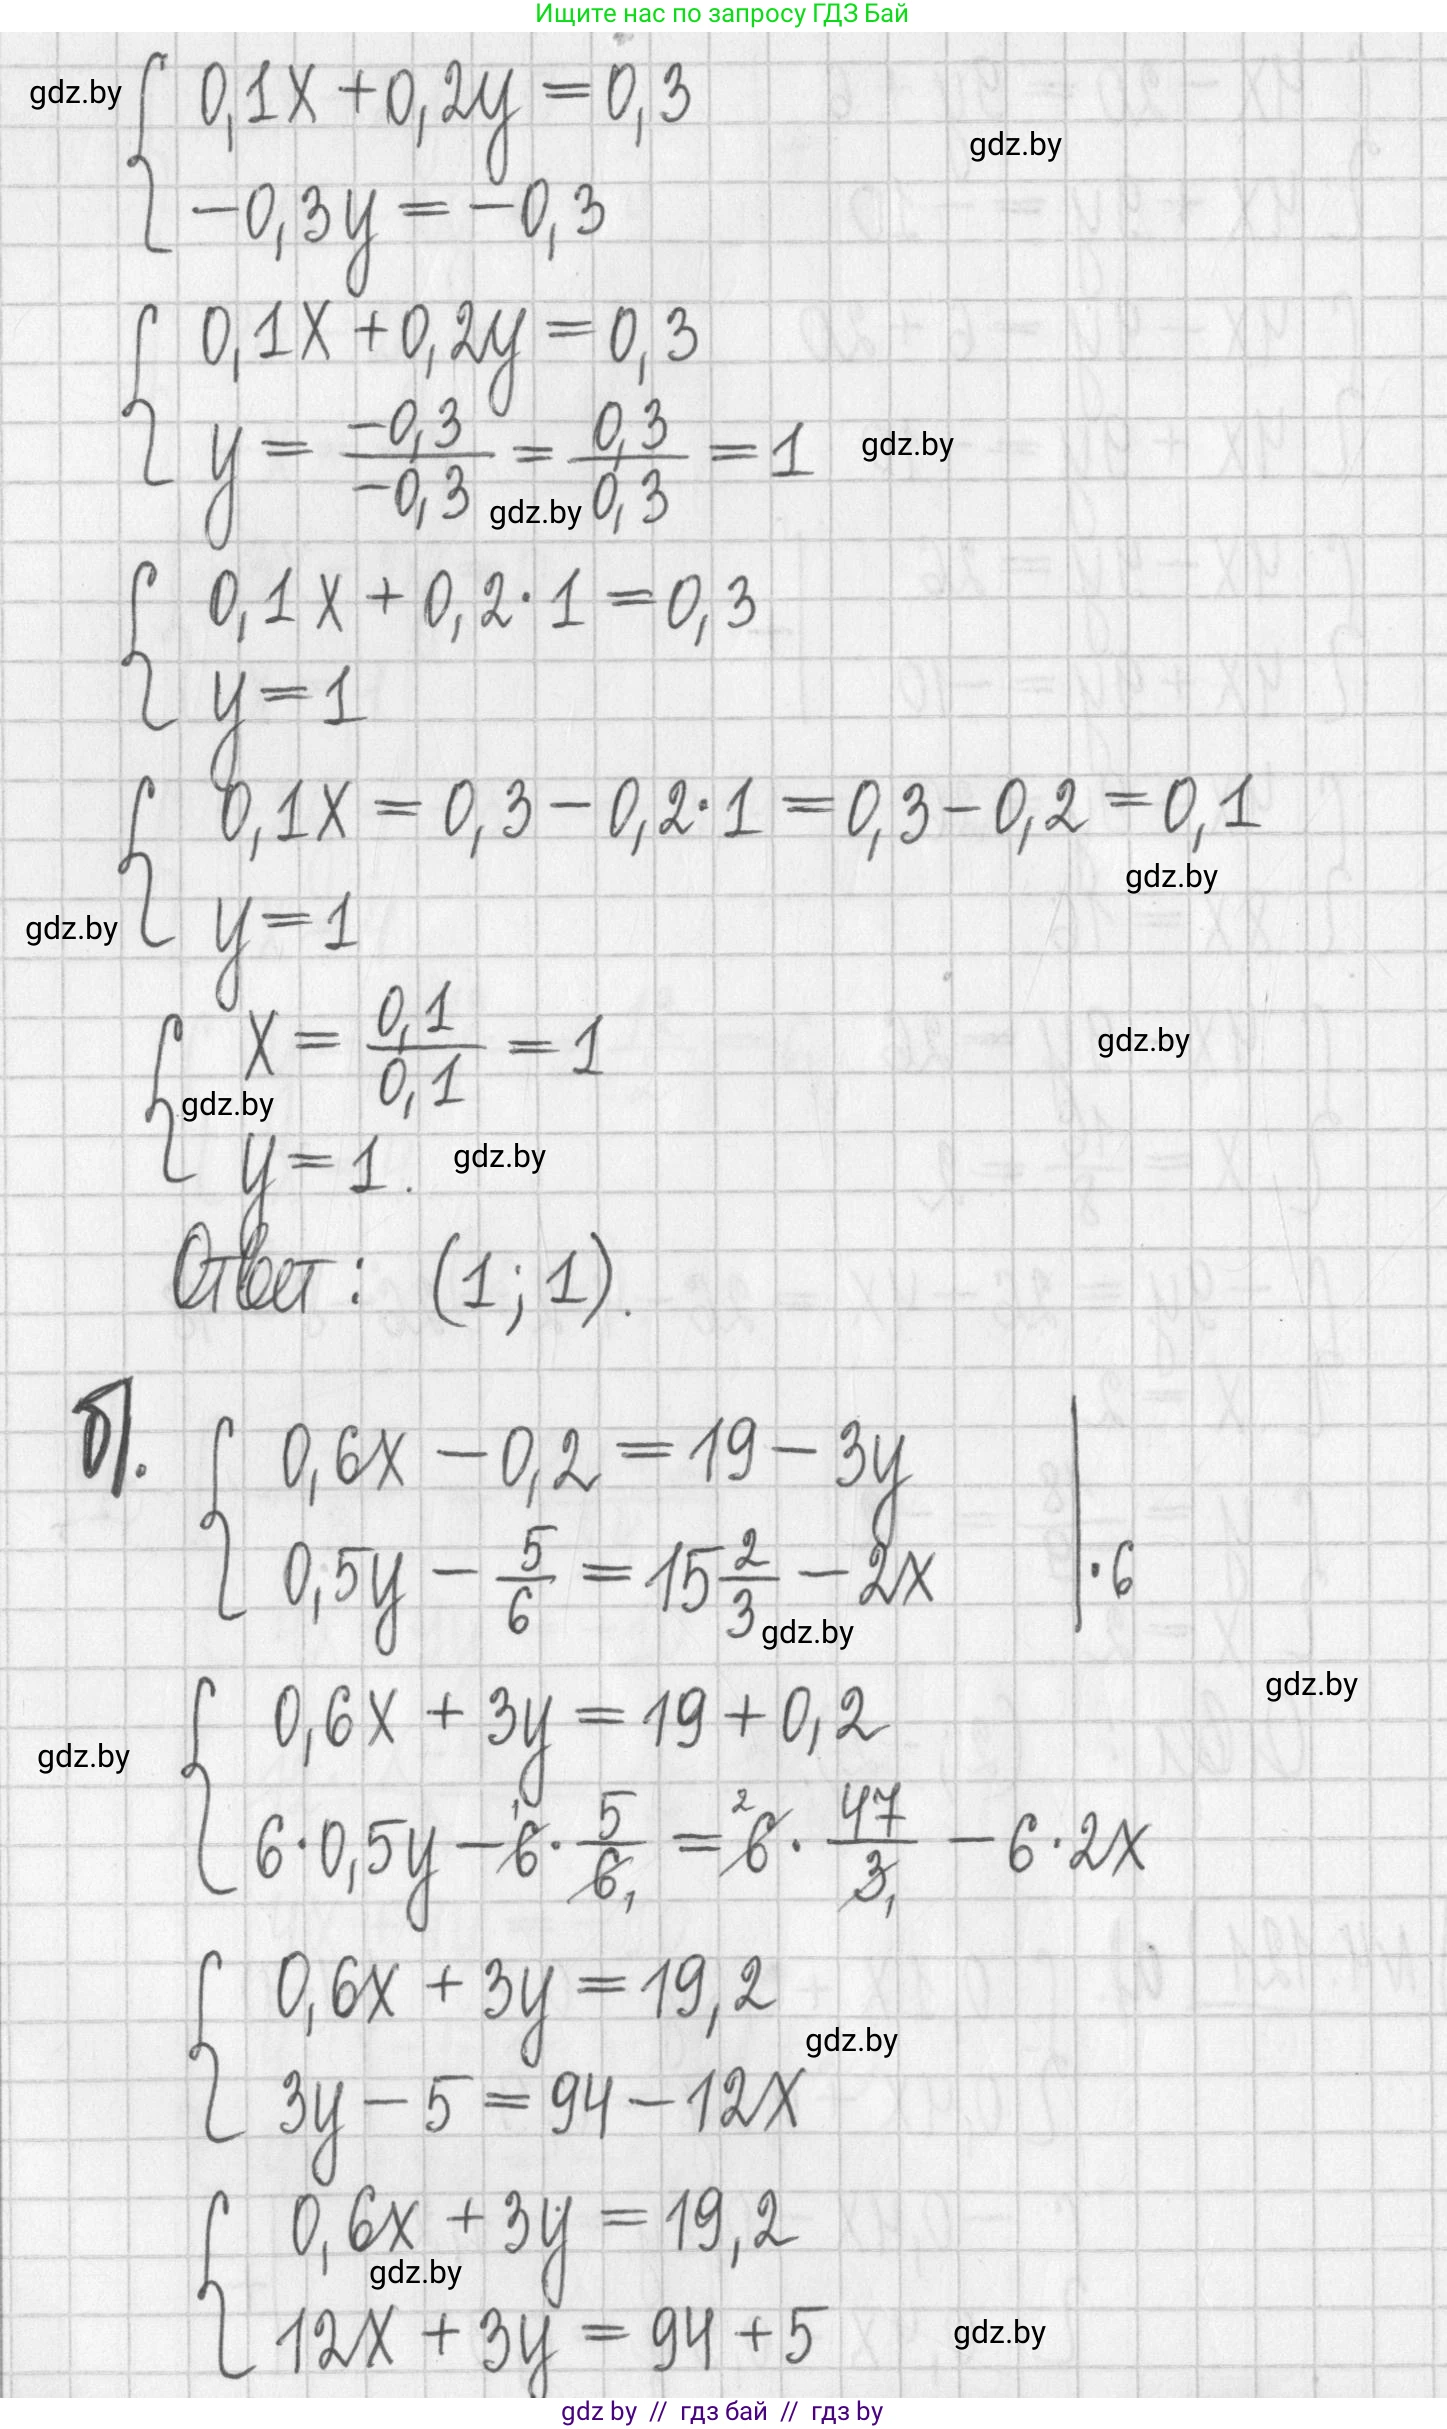 Ищите нас по запросу ГДЗ Бай
gdz.by
0,1x + 0,2y = 0,3
gdz.by
-0,3y = -0,3
0,1x + 0,2y = 0,3
y = -0,3/-0,3 = 0,3/0,3 = 1
gdz.by
gdz.by
0,1x + 0,2·1 = 0,3
y = 1
0,1x = 0,3 - 0,2·1 = 0,3 - 0,2 = 0,1
gdz.by
gdz.by
y = 1
x = 0,1/0,1 = 1
gdz.by
gdz.by
y = 1.
gdz.by
Ответ: (1; 1).
б). 0,6x - 0,2 = 19 - 3y
0,5y - 5/6 = 15 2/3 - 2x |·6
gdz.by
gdz.by
0,6x + 3y = 19 + 0,2
gdz.by
6·0,5y - 6·5/6 = 6·47/3 - 6·2x
0,6x + 3y = 19,2
gdz.by
3y - 5 = 94 - 12x
0,6x + 3y = 19,2
gdz.by
12x + 3y = 94 + 5
gdz.by
gdz by // гдз бай // гдз by